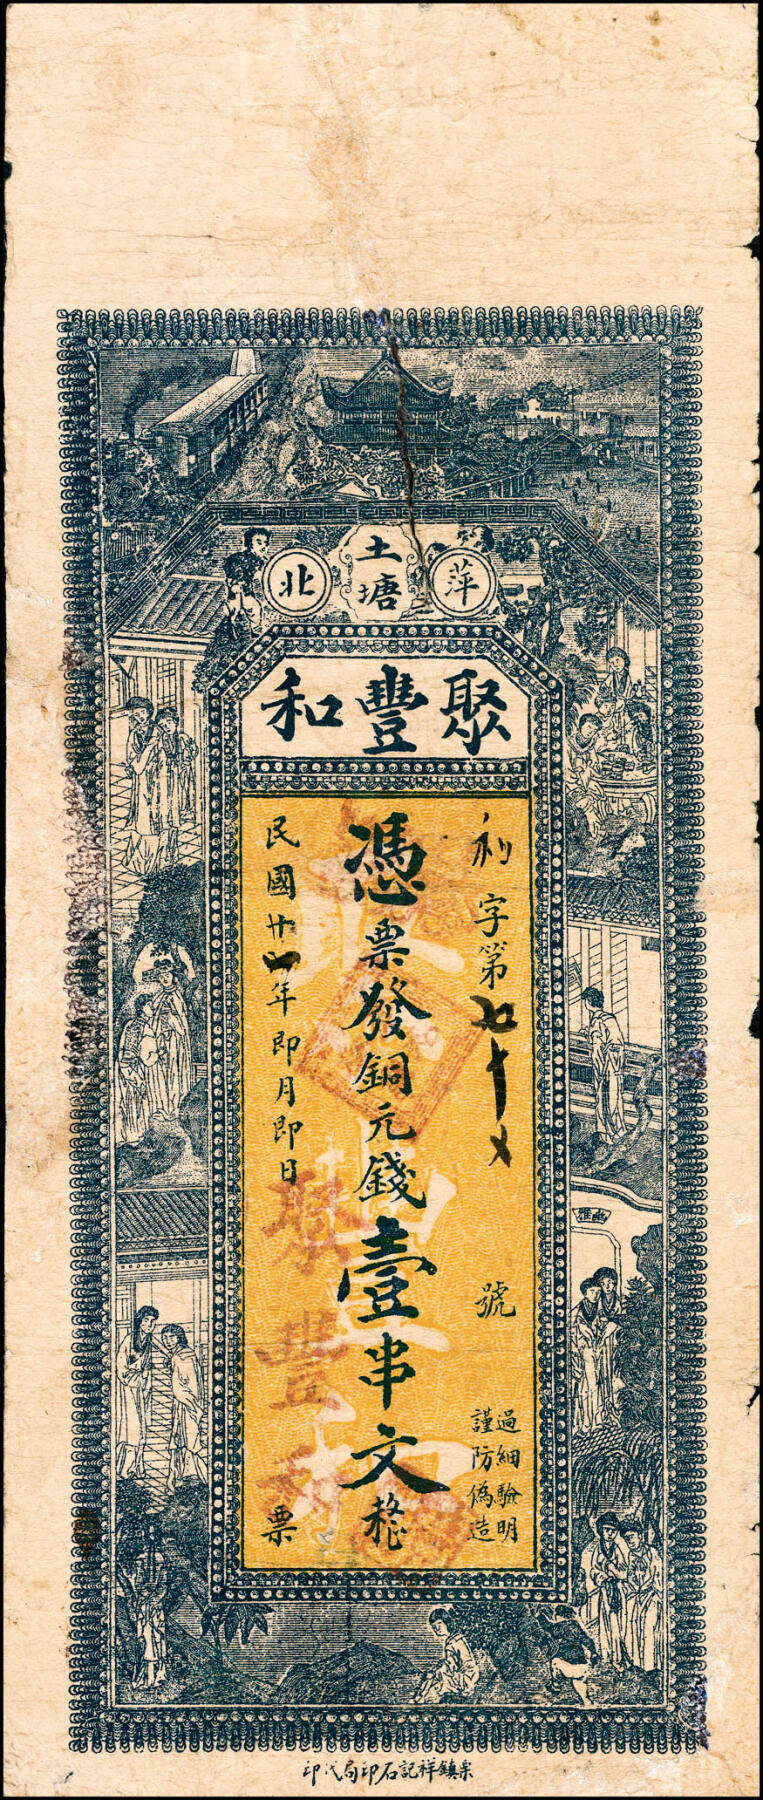 萍
土塘
北
聚豐和
利字第七十乂號
過細驗明
謹防偽造
憑票發銅元錢壹串文
民國廿一年即月即日票
聚豐和
幽雅
栗鎮祥記石印局代印